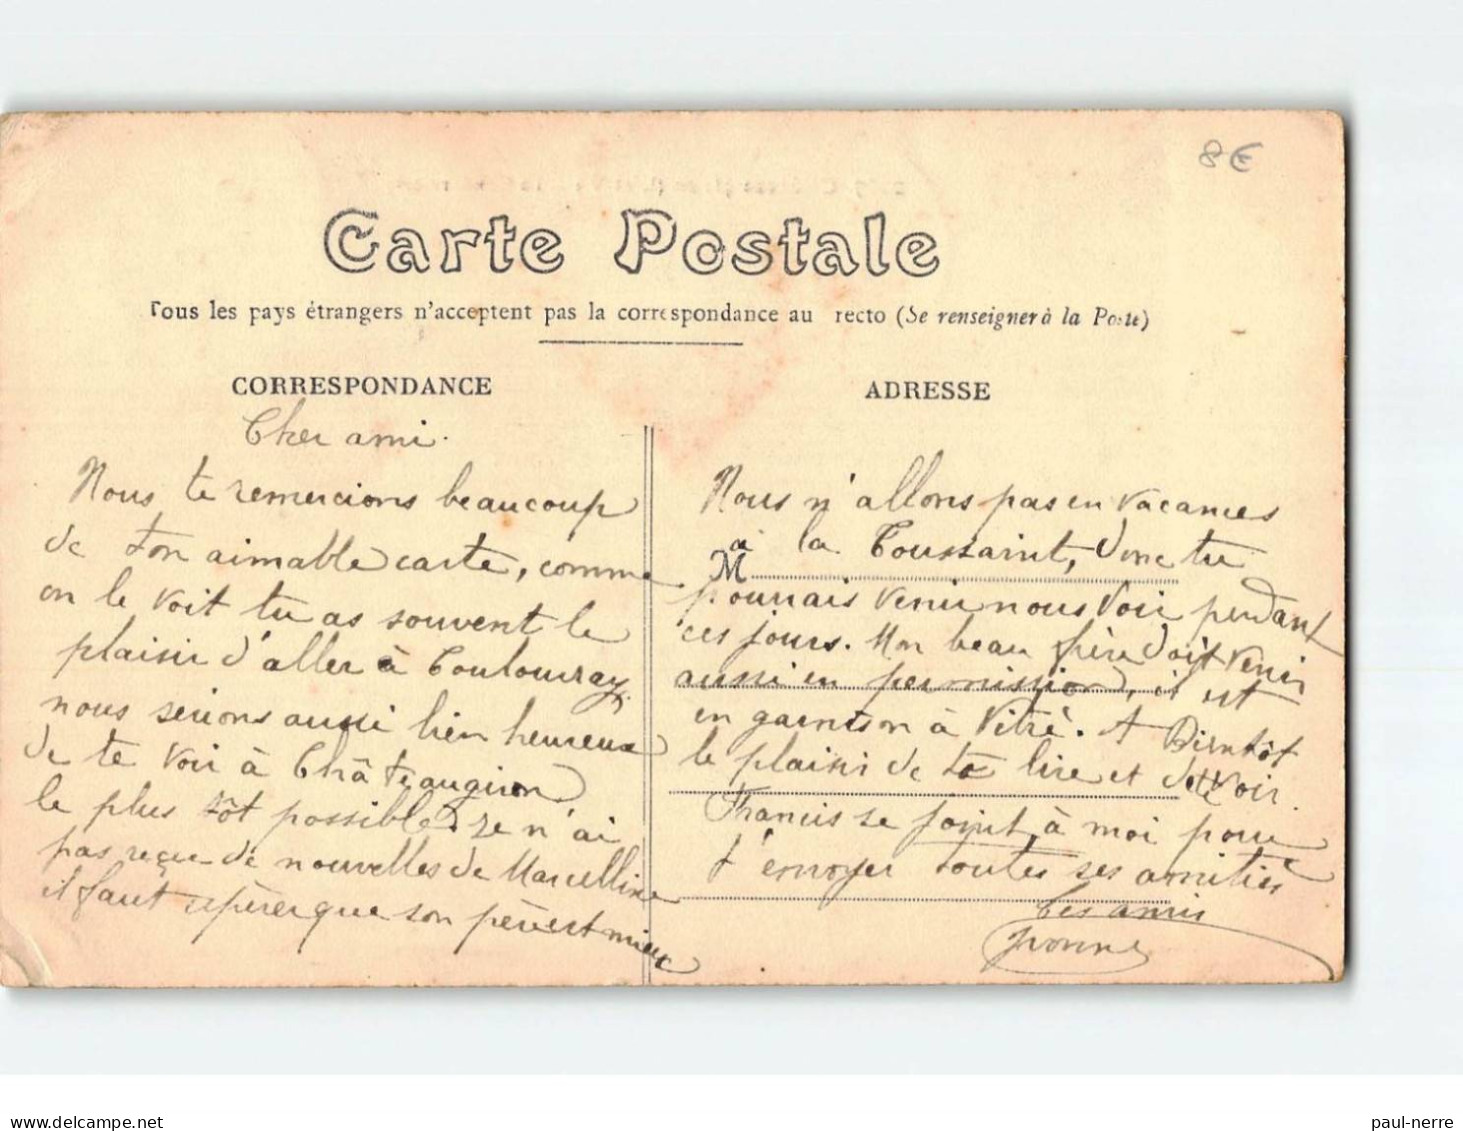 8€
Carte Postale
Tous les pays étrangers n'acceptent pas la correspondance au recto (Se renseigner à la Poste)
CORRESPONDANCE
Cher ami.
Nous te remercions beaucoup
de ton aimable carte, comme
on le voit tu as souvent le
plaisir d'aller à Coulouray
nous serions aussi bien heureux
de te voir à Châteaugiron
le plus tôt possible. Je n'ai
pas reçu de nouvelles de Marcelline
il faut espérer que son père est mieux
ADRESSE
M
Nous n'allons pas en vacances
à la Toussaint, donc tu
pourrais venir nous voir pendant
ces jours. Mon beau frère doit venir
aussi en permission, il est
en garnison à Vitré. A Bientôt
le plaisir de te lire et de te voir.
Francis se joint à moi pour
t'envoyer toutes ses amitiés
Tes amis
Yvonne
paul-nerre